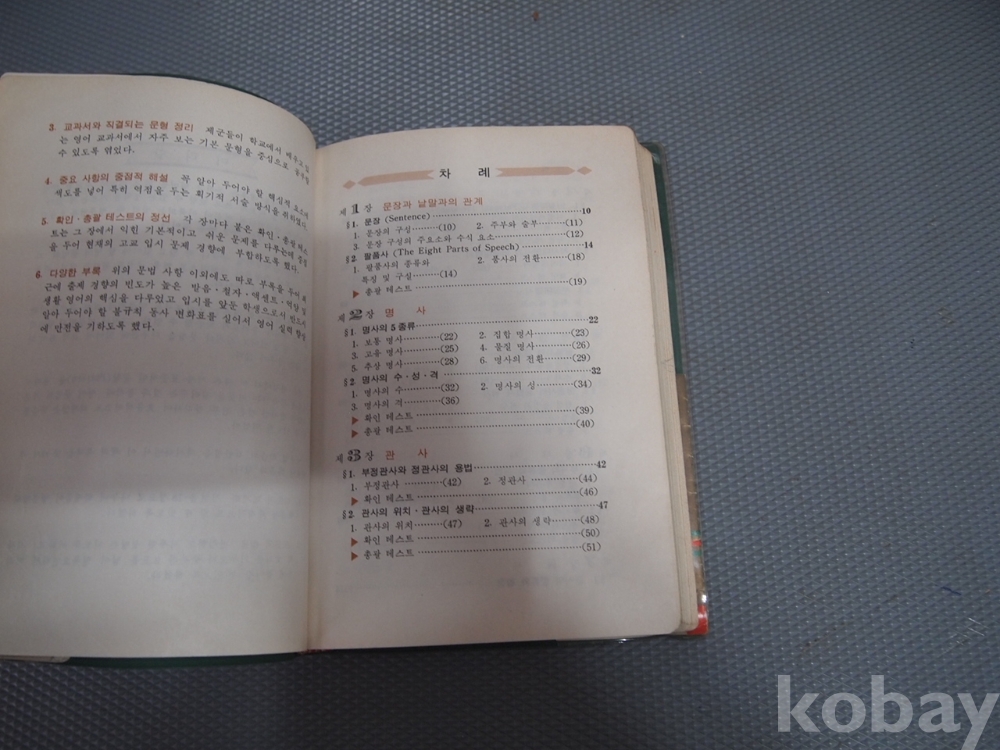 3. 교과서와 직결되는 문형 정리 제군들이 학교에서 배우고 있
는 영어 교과서에서 자주 보는 기본 문형을 중심으로 공부할
수 있도록 엮었다.
4. 중요 사항의 중점적 해설 꼭 알아 두어야 할 핵심적 요소에
세도를 넣어 특히 역점을 두는 획기적 서술 방식을 취하였다.
5. 확인·총괄 테스트의 정선 각 장마다 붙은 확인·총괄 테스
트는 그 장에서 익힌 기본적이고 쉬운 문제를 다루는데 중점
을 두어 현재의 고교 입시 문제 경향에 부합하도록 했다.
6. 다양한 부록 위의 문법 사항 이외에도 따로 부록을 두어 최
근에 출제 경향의 빈도가 높은 발음·철자·액센트·속담 및
생활 영어의 핵심을 다루었고 입시를 앞둔 학생으로서 반드시
알아 두어야 할 불규칙 동사 변화표를 실어서 영어 실력 향상
에 만전을 기하도록 했다.
차 례
제1장 문장과 낱말과의 관계
§1. 문장 (Sentence) 10
1. 문장의 구성 (10) 2. 주부와 술부 (11)
3. 문장 구성의 주요소와 수식 요소 (12)
§2. 팔품사 (The Eight Parts of Speech) 14
1. 팔품사의 종류와 2. 품사의 전환 (18)
특징 및 구실 (14)
▶ 총괄 테스트 (19)
제2장 명 사
§1. 명사의 5 종류 22
1. 보통 명사 (22) 2. 집합 명사 (23)
3. 고유 명사 (25) 4. 물질 명사 (26)
5. 추상 명사 (28) 6. 명사의 전환 (29)
§2. 명사의 수·성·격 32
1. 명사의 수 (32) 2. 명사의 성 (34)
3. 명사의 격 (36)
▶ 확인 테스트 (39)
▶ 총괄 테스트 (40)
제3장 관 사
§1. 부정관사와 정관사의 용법 42
1. 부정관사 (42) 2. 정관사 (44)
▶ 확인 테스트 (46)
§2. 관사의 위치·관사의 생략 47
1. 관사의 위치 (47) 2. 관사의 생략 (48)
▶ 확인 테스트 (50)
▶ 총괄 테스트 (51)
kobay